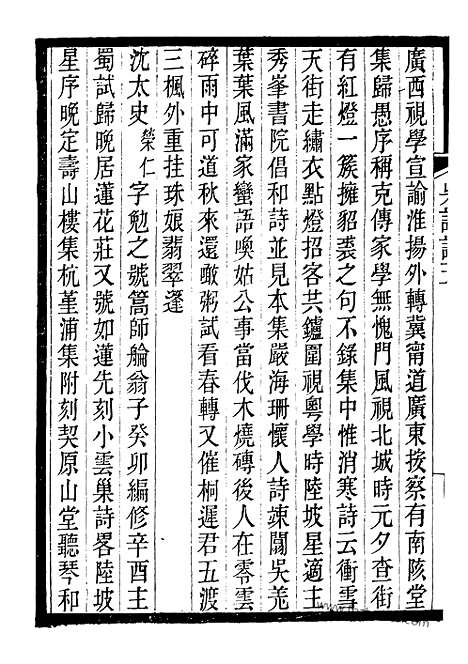 廣西視學宣諭淮揚外轉冀甯道廣東按察有南陔堂
集歸愚序稱克傳家學無愧門風視北城時元夕查街
有紅燈一簇擁貂裘之句不錄集中惟消寒詩云衝雪
天街走繡衣點燈招客共鑪圍視粵學時陸坡星適主
秀峯書院倡和詩並見本集嚴海珊懷人詩竦闊吳羗
葉葉風滿家蠻語喚姑公事當伐木燒磚後人在零雲
碎雨中可道秋來還噉粥試看春轉又催桐遲君五渡
三楓外重挂珠娘翡翠篷
沈太史榮仁字勉之號篙師舲翁子癸卯編修辛酉主
蜀試歸晚居蓮花莊又號如蓮先刻小雲巢詩畧陸坡
星序晚定壽山樓集杭堇浦集附刻契原山堂聽琴和